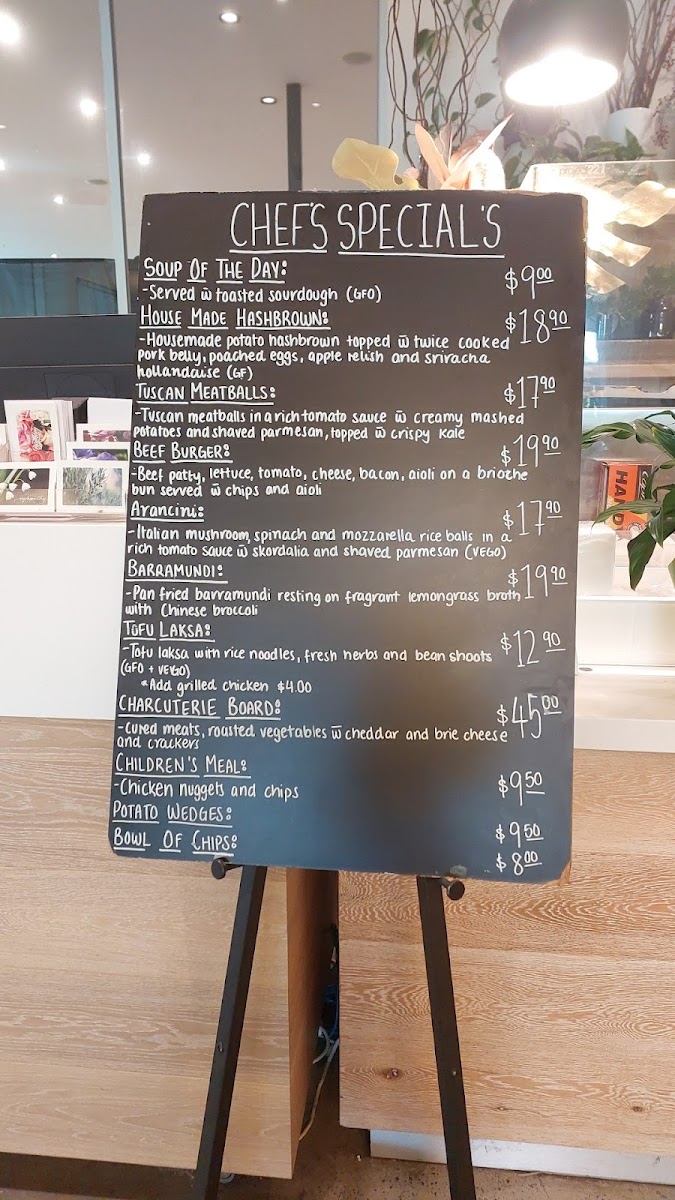 CHEF'S SPECIAL'S
SOUP OF THE DAY: $9.00
-Served w̄ toasted sourdough (GFO)
HOUSE MADE HASHBROWN: $18.90
-Housemade potato hashbrown topped w̄ twice cooked
pork belly, poached eggs, apple relish and sriracha
hollandaise (GF)
TUSCAN MEATBALLS: $17.90
-Tuscan meatballs in a rich tomato sauce w̄ creamy mashed
potatoes and shaved parmesan, topped w̄ crispy kale
BEEF BURGER: $19.90
-Beef patty, lettuce, tomato, cheese, bacon, aioli on a brioche
bun served w̄ chips and aioli
Arancini: $17.90
-Italian mushroom, spinach and mozzarella rice balls in a
rich tomato sauce w̄ skordalia and shaved parmesan (VEGO)
BARRAMUNDI: $19.90
-Pan fried barramundi resting on fragrant lemongrass broth
with Chinese broccoli
TOFU LAKSA: $12.90
-Tofu laksa with rice noodles, fresh herbs and bean shoots
(GFO + VEGO)
*Add grilled chicken $4.00
CHARCUTERIE BOARD: $45.00
-Cured meats, roasted vegetables w̄ cheddar and brie cheese
and crackers
CHILDREN'S MEAL: $9.50
-Chicken nuggets and chips
POTATO WEDGES: $9.50
BOWL OF CHIPS: $8.00
HAND